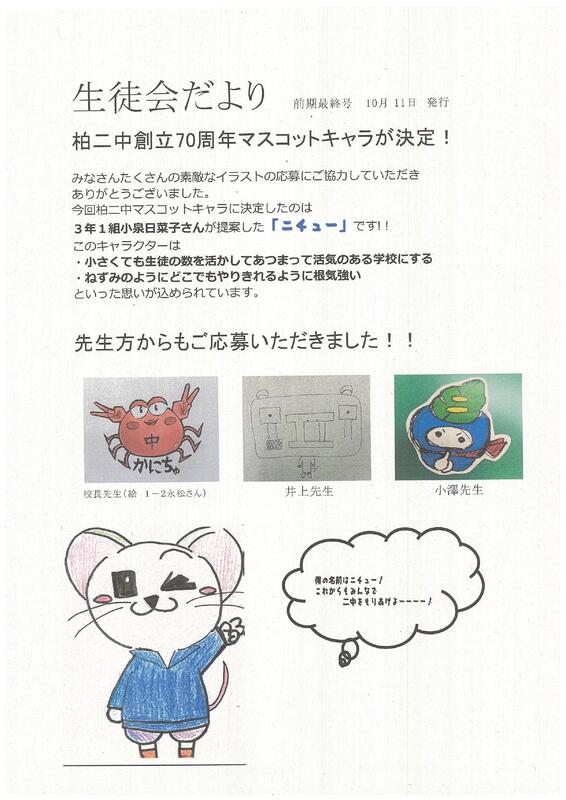 生徒会だより 前期最終号 10月11日 発行
柏二中創立70周年マスコットキャラが決定！
みなさんたくさんの素敵なイラストの応募にご協力していただき
ありがとうございました。
今回柏二中マスコットキャラに決定したのは
３年１組小泉日菜子さんが提案した「ニチュー」です!!
このキャラクターは
・小さくても生徒の数を活かしてあつまって活気のある学校にする
・ねずみのようにどこでもやりきれるように根気強い
といった思いが込められています。
先生方からもご応募いただきました！！
中
かにちゅ
二
校長先生(絵 １－２永松さん)
井上先生
小澤先生
僕の名前はニチュー！
これからもみんなで
二中をもりあげよーーーー！